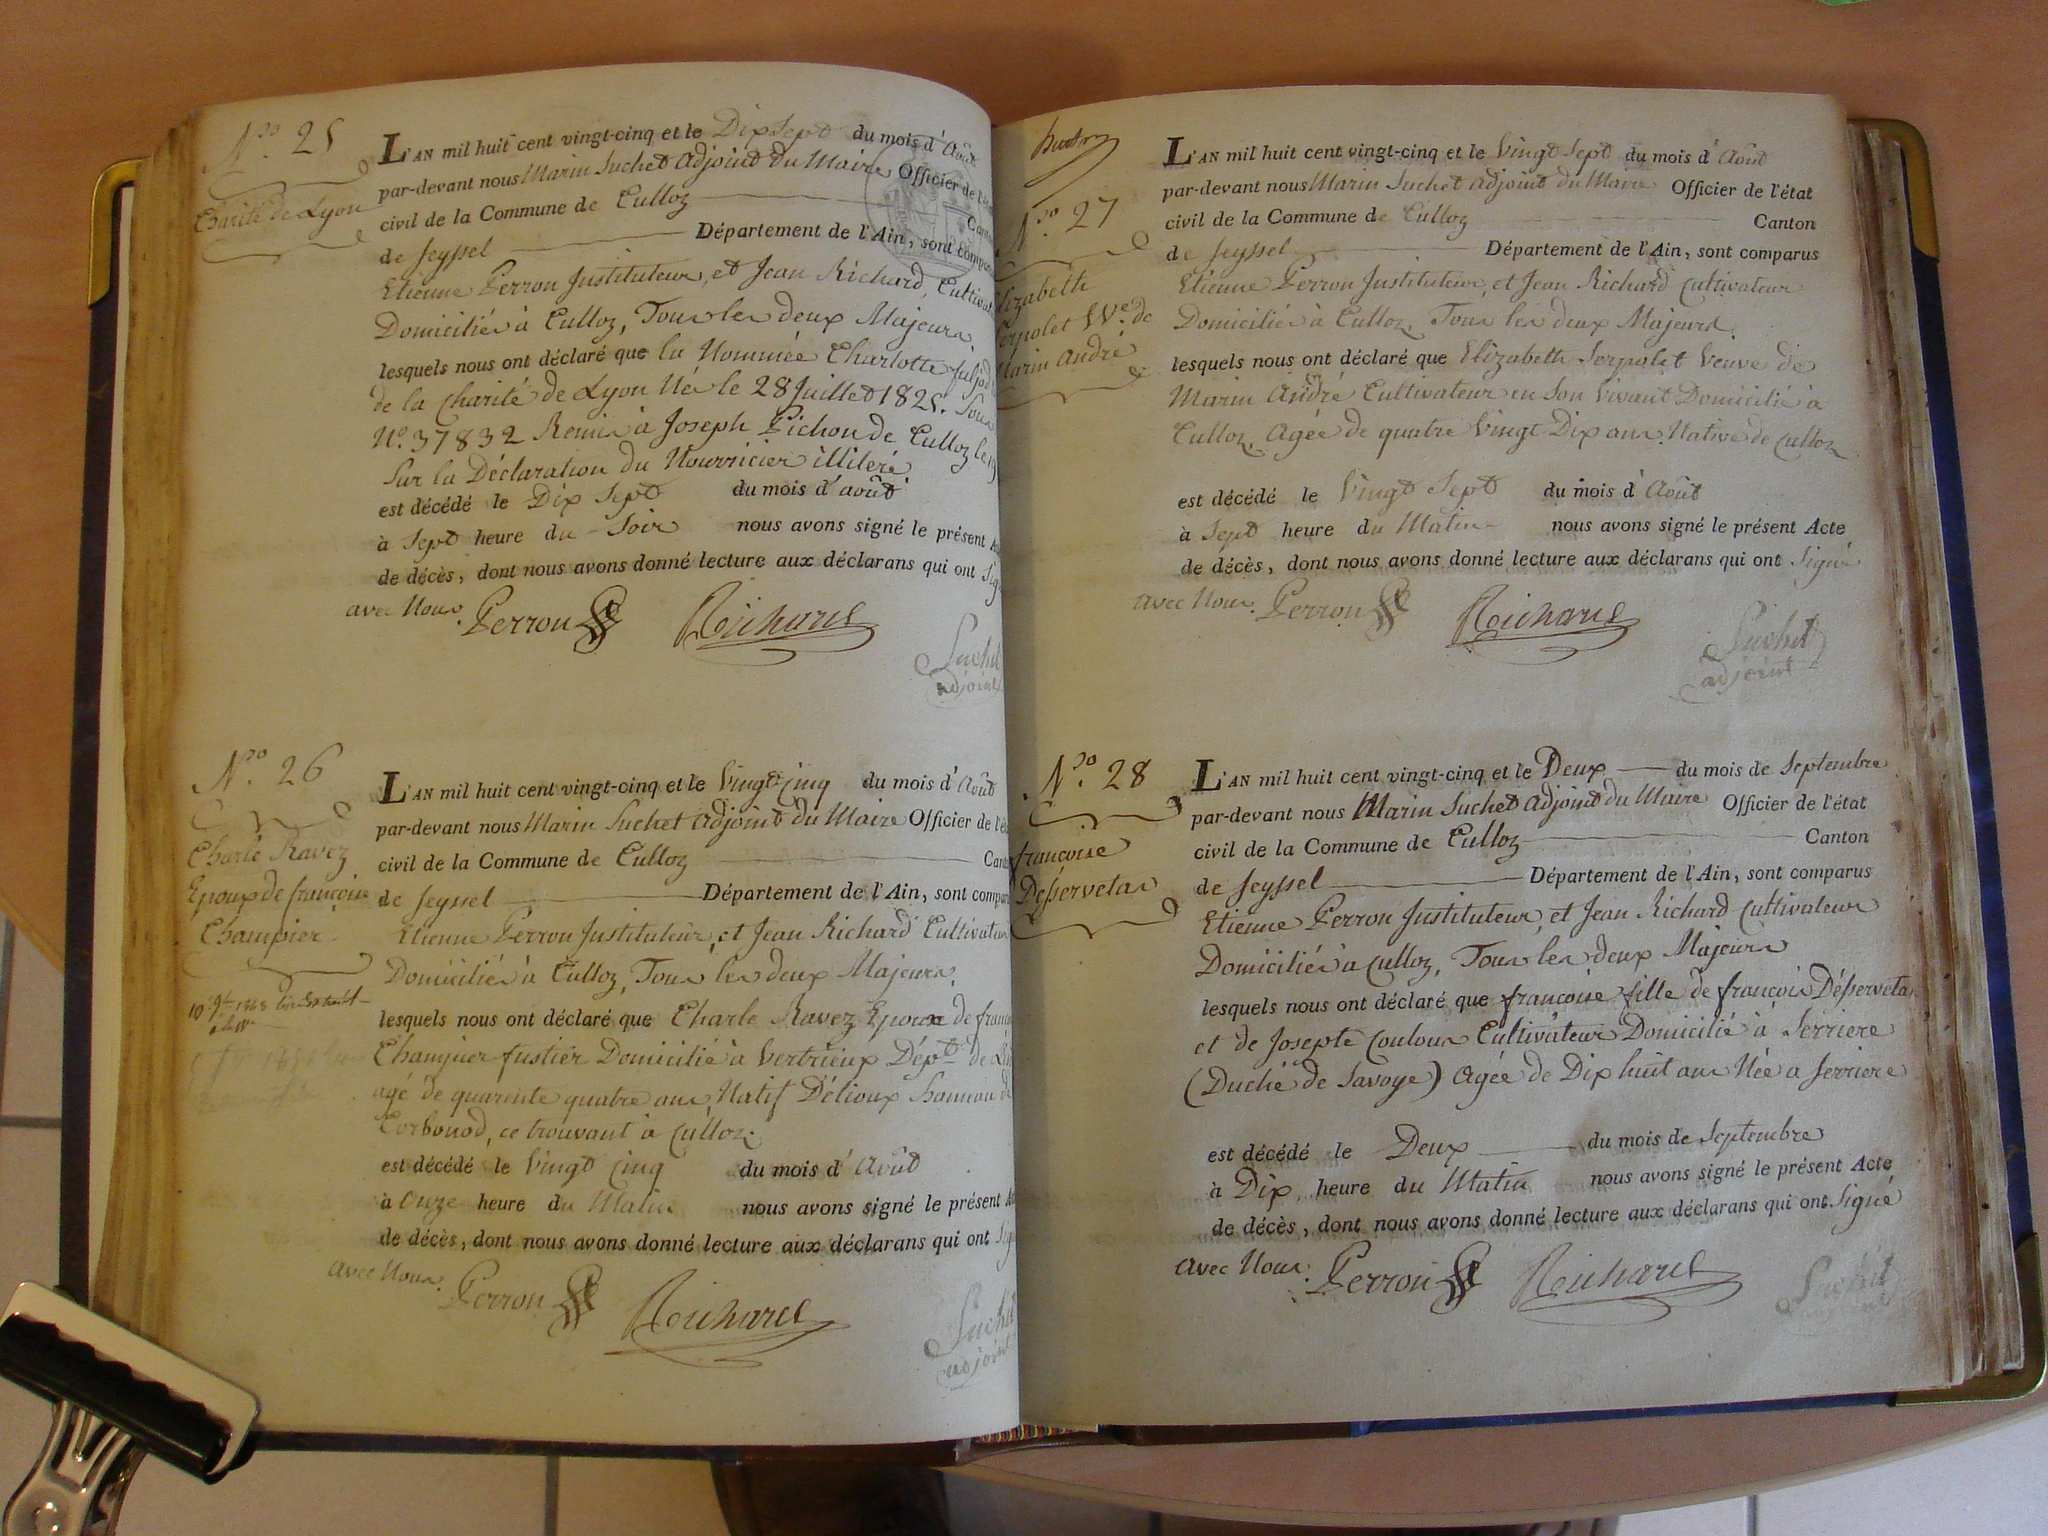 N.ro 25
Charité de Lyon
L'AN mil huit cent vingt-cinq et le Dix Sept du mois d'Août
par-devant nous Marin Suchet adjoint du Maire Officier de
civil de la Commune de Culloz
de Seyssel Département de l'Ain, sont
Etienne Perron Instituteur, et Jean Richard,
Domiciliés à Culloz, Tous les deux Majeurs,
lesquels nous ont déclaré que la Nommée Charlotte
de la Charité de Lyon Née le 28 Juillet 1825. Sous
N.o 37832 Remis à Joseph Pichon de Culloz le 19
Sur la Déclaration du Nourricier illiteré
est décédé le Dix Sept du mois d'août
à Sept heure du Soir nous avons signé le présent
de décès, dont nous avons donné lecture aux déclarans qui ont
avec Nous. Perron Richard
Suchet
adjoint
N.ro 26
Charle Ravez
Epoux de françoise
Champier
L'AN mil huit cent vingt-cinq et le Vingt-cinq du mois d'Août
par-devant nous Marin Suchet adjoint du Maire Officier de
civil de la Commune de Culloz
de Seyssel Département de l'Ain, sont
Etienne Perron Instituteur, et Jean Richard
Domiciliés à Culloz, Tous les deux Majeurs,
lesquels nous ont déclaré que Charle Ravez Epoux de
Champier fustier Domicilié à Vertrieux Dép.t de
agé de quarente quatre ans, Natif
Corbonod, ce trouvant à Culloz.
est décédé le Vingt cinq du mois d'Août
à Onze heure du Matin nous avons signé le présent
de décès, dont nous avons donné lecture aux déclarans qui ont
avec Nous. Perron Richard
Suchet
adjoint
N.ro 27
Elizabeth
Serpolet Ve. de
Marin André
L'AN mil huit cent vingt-cinq et le Vingt Sept du mois d'Août
par-devant nous Marin Suchet adjoint du Maire Officier de l'état
civil de la Commune de Culloz Canton
de Seyssel Département de l'Ain, sont comparus
Etienne Perron Instituteur, et Jean Richard cultivateur
Domiciliés à Culloz, Tous les deux Majeurs
lesquels nous ont déclaré que Elizabeth Serpolet Veuve de
Marin André Cultivateur en Son Vivant Domicilié à
Culloz, Agée de quatre Vingt Dix ans. Native de Culloz
est décédé le Vingt Sept du mois d'Août
à Sept heure du Matin nous avons signé le présent Acte
de décès, dont nous avons donné lecture aux déclarans qui ont Signé
avec Nous. Perron Richard
Suchet
adjoint
N.ro 28
francoise
Désservetas
L'AN mil huit cent vingt-cinq et le Deux du mois de Septembre
par-devant nous Marin Suchet adjoint du Maire Officier de l'état
civil de la Commune de Culloz Canton
de Seyssel Département de l'Ain, sont comparus
Etienne Perron Instituteur, et Jean Richard cultivateur
Domiciliés à Culloz, Tous les deux Majeurs
lesquels nous ont déclaré que francoise fille de françois
et de Josepte Coulous Cultivateur Domicilié à Serriere
(Duché de Savoye) Agée de Dix huit ans Née a Serriere
est décédé le Deux du mois de Septembre
à Dix heure du Matin nous avons signé le présent Acte
de décès, dont nous avons donné lecture aux déclarans qui ont Signé
avec Nous. Perron Richard
Suchet